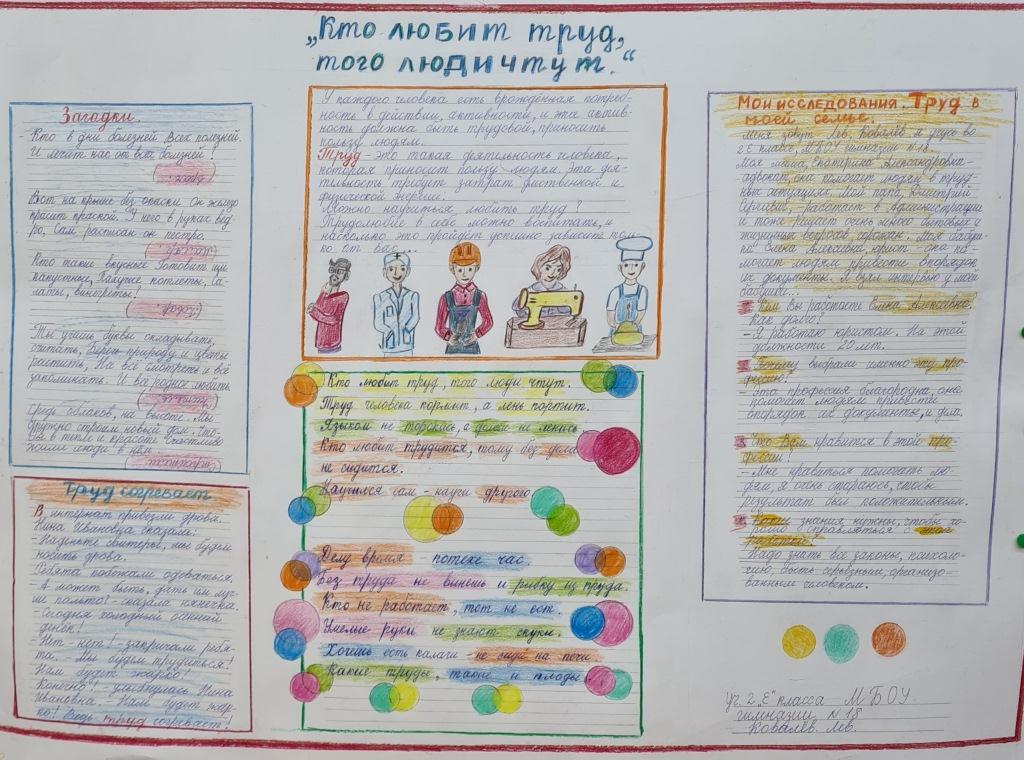 „Кто любит труд,
того люди чтут.“
Загадки.
- Кто в дни болезней Всех полезней.
И лечит нас от всех болезней!
Вот на крыше без опаски Он железо
красит краской. У него в руках вед-
ро, Сам расписан он пестро.
Кто такие вкусные Готовит щи
капустные, Пахучие котлеты, Са-
латы, винегреты!
Ты учишь буквы складывать,
считать, Беречь природу и цветы
растить, На всё смотреть и всё
запоминать. И всё родное любить.
Средь облаков, на высоте, Мы
дружно строим новый дом. Что-
бы в тепле и красоте Счастливо
жили люди в нём.
Труд согревает
В интернат привезли дрова.
Нина Ивановна сказала:
- Наденьте свитеры, мы будем
носить дрова.
Ребята побежали одеваться.
- А может быть, дать им луч-
ше пальто? - сказала нянечка.
- Сегодня холодный осенний
день!
- Нет - нет! - закричали ребя-
та. - Мы будем трудиться!
Нам будет жарко!
- Конечно! - улыбнулась Нина
Ивановна. - Нам будет жар-
ко! Ведь труд согревает!
У каждого человека есть врождённая потреб-
ность в действии, активности, и эта актив-
ность должна быть трудовой, приносить
пользу людям.
Труд - это такая деятельность человека,
которая приносит пользу людям. Эта дея-
тельность требует затрат умственной и
физической энергии.
Можно научиться любить труд?
Трудолюбие в себе можно воспитать, и
насколько это пройдёт успешно зависит толь-
ко от вас...
Кто любит труд, того люди чтут.
Труд человека кормит, а лень портит.
Языком не торопись, а делом не ленись
Кто любит трудится, тому без дела
не сидится.
Научился сам - научи другого
Делу время - потехе час.
Без труда не вынешь и рыбку из пруда.
Кто не работает, тот не ест
Умелые руки не знают скуки.
Хочешь есть калачи - не сиди на печи.
Какие труды, такие и плоды.
Мои исследования. Труд в
моей семье.
Меня зовут Лев Ковалёв я учусь во
2 Е классе, МБОУ гимназии №18.
Моя мама, Екатерина Александровна -
адвокат, она помогает людям в труд-
ных ситуациях. Мой папа, Дмитрий
Сергеевич, работает в администрации
и тоже решает очень много бытовых и
жизненных вопросов, граждан. Моя бабуш-
ка Елена Алексеевна юрист - она по-
могает людям привести впорядок
их документы. Я взял интервью у моей
бабушки...
1. Кем Вы работаете Елена Алексеевна.
Как долго?
- Я работаю юристом. На этой
должности 20 лет.
2. Почему выбрали именно эту про-
фессию?
- Эта профессия благородна, она
помогает людям привести
впорядок их документы, и дела.
3. Что Вам нравится в этой про-
фессии?
- Мне нравиться помогать лю-
дям, я очень стараюсь, чтобы
результат был положительным.
4. Какие знания нужны, чтобы хо-
рошо справляться с этой
работой?
- Надо знать все законы, психоло-
гию, быть серьёзным, организо-
ванным человеком.
уч. 2 „Е" класса МБОУ
гимназии N 18
Ковалёв Лев.